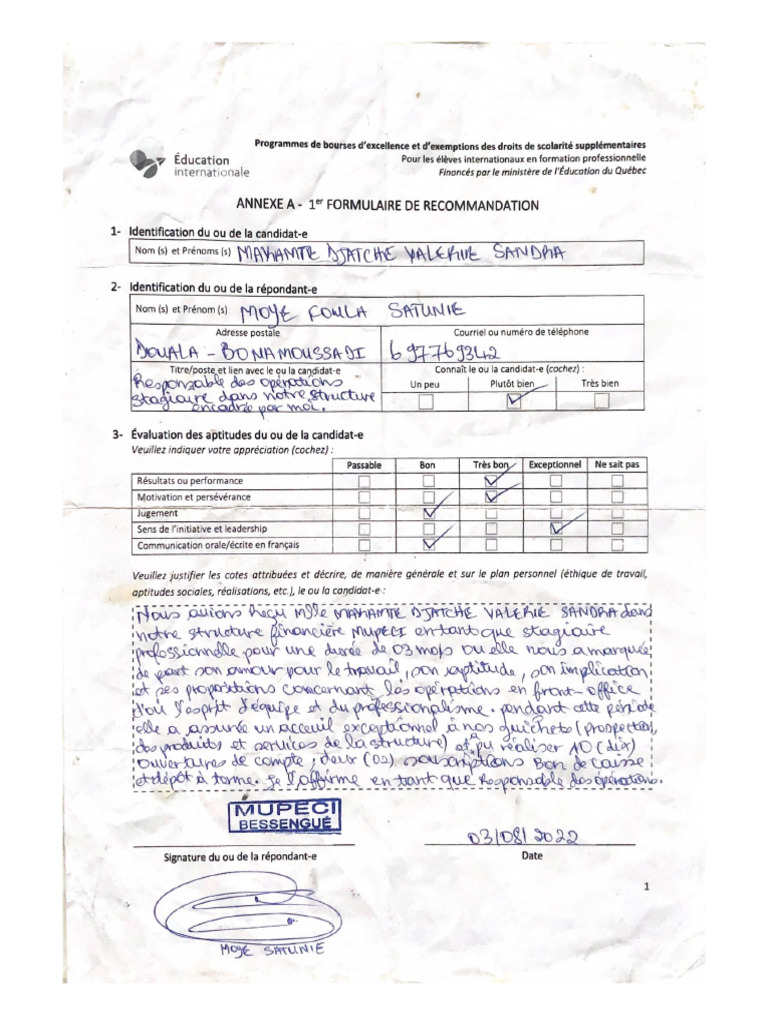 Programmes de bourses d'excellence et d'exemptions des droits de scolarité supplémentaires
Éducation
internationale
Pour les élèves internationaux en formation professionnelle
Financés par le ministère de l'Éducation du Québec
ANNEXE A - 1er FORMULAIRE DE RECOMMANDATION
1- Identification du ou de la candidat-e
Nom (s) et Prénoms (s) MAKAMTE DJATCHE VALERIE SANDRA
2- Identification du ou de la répondant-e
Nom (s) et Prénom (s) MOYE FOWLA SATUNIE
Adresse postale Courriel ou numéro de téléphone
DOUALA - BONAMOUSSADI 697769342
Titre/poste et lien avec le ou la candidat-e Connaît le ou la candidat-e (cochez) :
Responsable des opérations Un peu Plutôt bien Très bien
stagiaire dans notre structure
encadrée par moi.
3- Évaluation des aptitudes du ou de la candidat-e
Veuillez indiquer votre appréciation (cochez) :
Passable Bon Très bon Exceptionnel Ne sait pas
Résultats ou performance
Motivation et persévérance
Jugement
Sens de l'initiative et leadership
Communication orale/écrite en français
Veuillez justifier les cotes attribuées et décrire, de manière générale et sur le plan personnel (éthique de travail,
aptitudes sociales, réalisations, etc.), le ou la candidat-e :
Nous avions reçu Mlle MAKAMTE DJATCHE VALERIE SANDRA dans
notre structure financière MUPECI en tant que stagiaire
professionnelle pour une durée de 03 mois ou elle nous a marquée
de part son amour pour le travail, son aptitude, son implication
et ses propositions concernant les opérations en front-office
d'où l'esprit d'équipe et du professionalisme. pendant cette période
elle a assurée un acceuil exceptionnel à nos guichets (prospection,
des produits et services de la structure) et a pu réaliser 10 (dix)
ouvertures de compte ; deux (02) souscriptions Bon de Caisse
et dépôt à terme. je l'affirme en tant que Responsable des opérations.
MUPECI
BESSENGUÉ
03/08/2022
Signature du ou de la répondant-e Date
1
MOYE SATUNIE